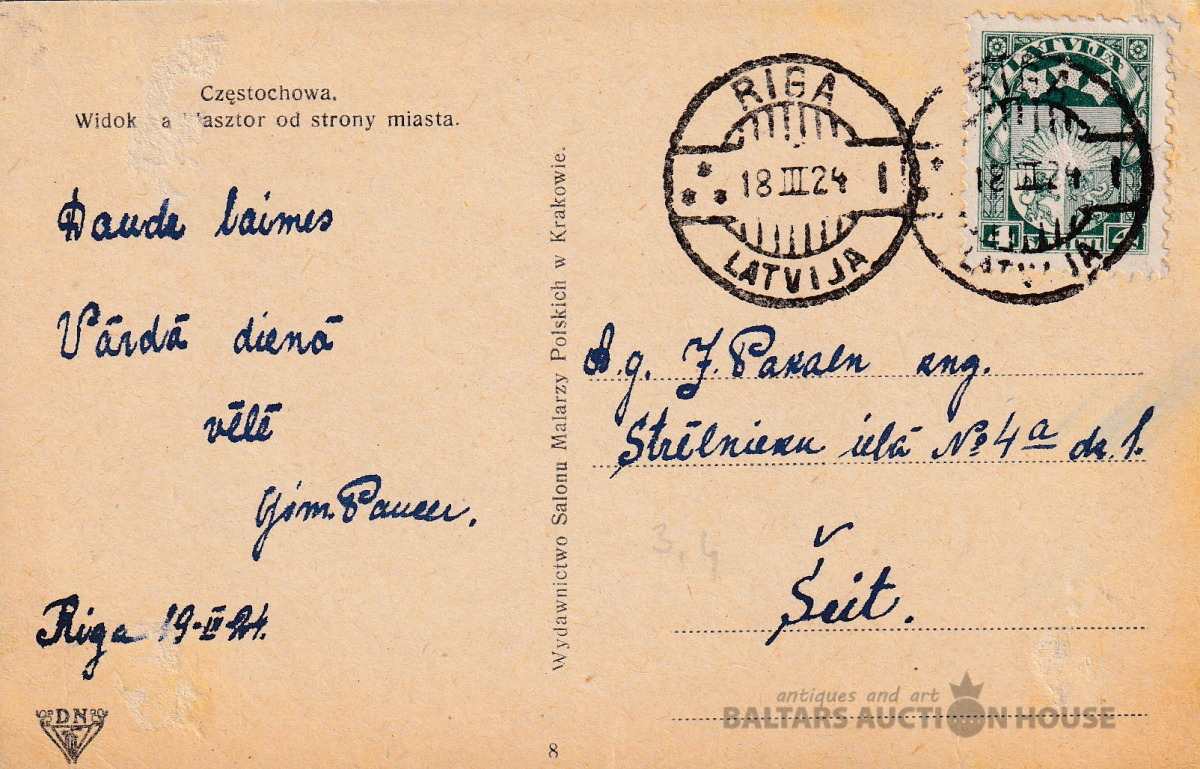 Częstochowa.
Widok a klasztor od strony miasta.
Daudz laimes
Vārdā dienā
vēlē
Ģim. Paucer.
Riga 19-III-24.
DN
8
Wydawnictwo Salonu Malarzy Polskich w Krakowie.
RIGA
18 III 24 1
LATVIJA
LATVIJA
18 III 24 1
LATVIJA
4 4
A.g. J. Pakaln kng.
Strēlnieku ielā № 4a dz. 1.
3,4
Šeit.
antiques and art
BALTARS AUCTION HOUSE